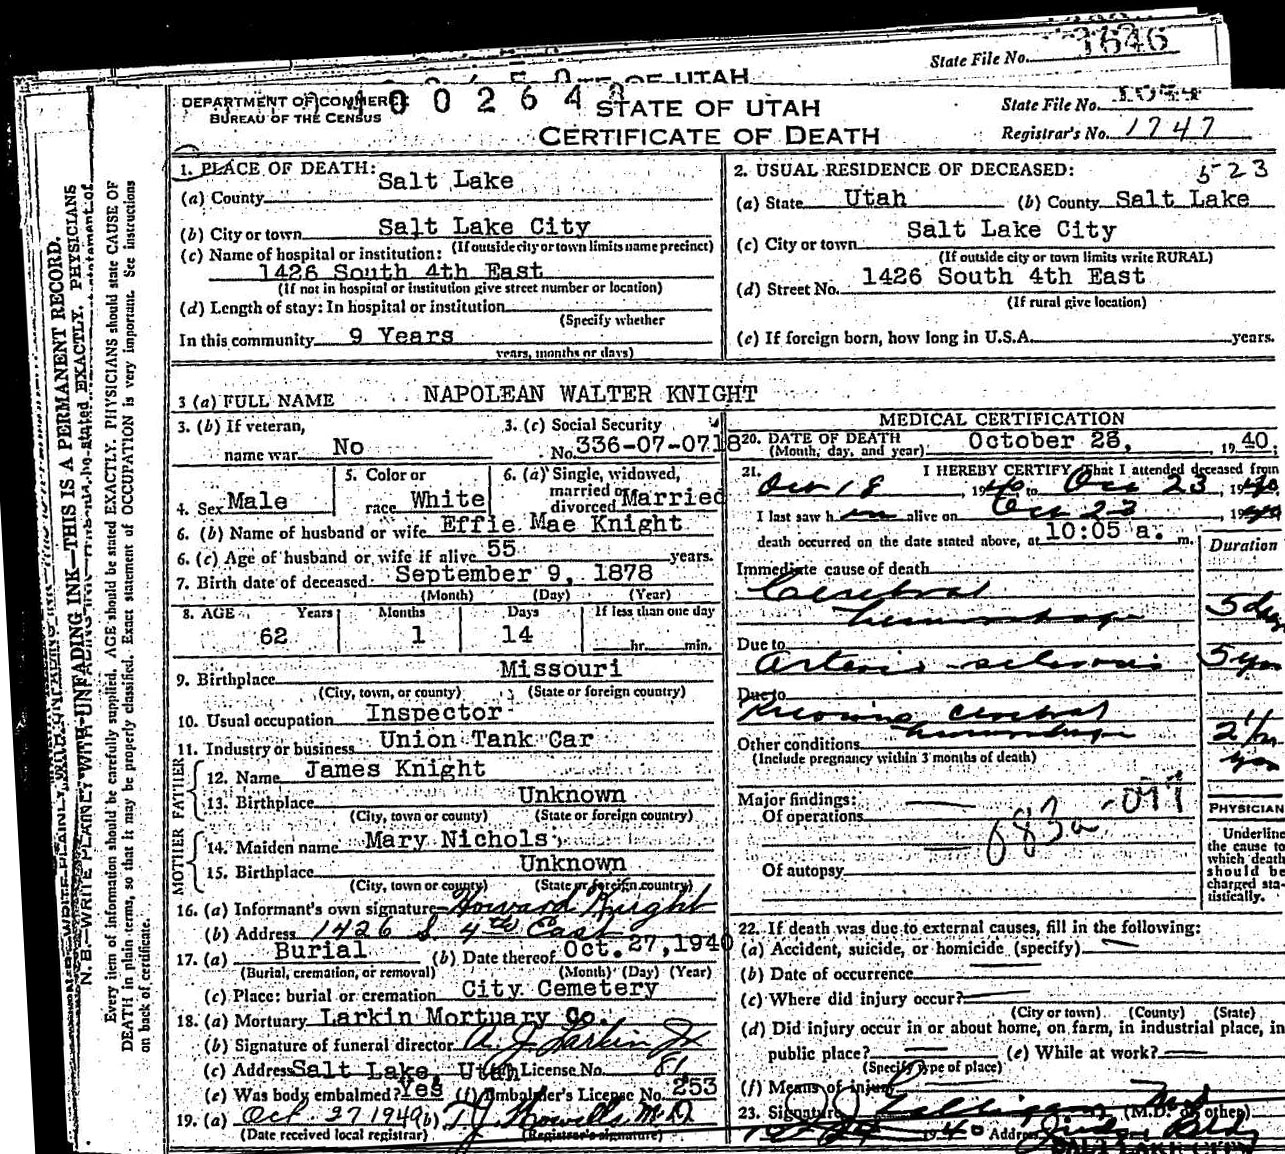 State File No. 1646
OF UTAH
DEPARTMENT OF COMMERCE
BUREAU OF THE CENSUS
STATE OF UTAH
CERTIFICATE OF DEATH
State File No.
Registrar's No. 1747
1. PLACE OF DEATH:
(a) County Salt Lake
(b) City or town Salt Lake City
(If outside city or town limits name precinct)
(c) Name of hospital or institution:
1426 South 4th East
(If not in hospital or institution give street number or location)
(d) Length of stay: In hospital or institution
(Specify whether
In this community 9 Years
years, months or days)
2. USUAL RESIDENCE OF DECEASED:
523
(a) State Utah (b) County Salt Lake
(c) City or town Salt Lake City
(If outside city or town limits write RURAL)
(d) Street No. 1426 South 4th East
(If rural give location)
(e) If foreign born, how long in U.S.A. years.
3 (a) FULL NAME NAPOLEAN WALTER KNIGHT
3. (b) If veteran,
name war No
3. (c) Social Security
No. 336-07-0718
4. Sex Male
5. Color or
race White
6. (a) Single, widowed,
married or
divorced Married
6. (b) Name of husband or wife Effie Mae Knight
6. (c) Age of husband or wife if alive 55 years.
7. Birth date of deceased September 9, 1878
(Month) (Day) (Year)
8. AGE Years Months Days If less than one day
62 1 14 hr. min.
9. Birthplace Missouri
(City, town, or county) (State or foreign country)
10. Usual occupation Inspector
11. Industry or business Union Tank Car
FATHER
12. Name James Knight
13. Birthplace Unknown
(City, town or county) (State or foreign country)
MOTHER
14. Maiden name Mary Nichols
15. Birthplace Unknown
(City, town or county) (State or foreign country)
16. (a) Informant's own signature Howard Knight
(b) Address 1426 S 4th East
17. (a) Burial (b) Date thereof Oct. 27, 1940
(Burial, cremation, or removal) (Month) (Day) (Year)
(c) Place: burial or cremation City Cemetery
18. (a) Mortuary Larkin Mortuary Co.
(b) Signature of funeral director A. J. Larkin Jr
(c) Address Salt Lake, Utah License No. 81
(e) Was body embalmed? Yes (f) Embalmer's License No. 253
19. (a) Oct 27 1940 (b) T. J. Howells M.D.
(Date received local registrar) (Registrar's signature)
MEDICAL CERTIFICATION
20. DATE OF DEATH October 23, 1940.
(Month, day, and year)
21. I HEREBY CERTIFY That I attended deceased from
Oct 18 1940, to Oct 23, 1940
I last saw him alive on Oct 23, 1940
death occurred on the date stated above, at 10:05 a. m.
Duration
Immediate cause of death
Cerebral
hemorrhage 5 days
Due to
Arterio sclerosis 5 yrs
Due to
Previous cerebral
hemorrhage 2 1/2 yrs
Other conditions
(Include pregnancy within 3 months of death)
Major findings:
Of operations
083a
Of autopsy
PHYSICIAN
Underline
the cause to
which death
should be
charged sta-
tistically.
22. If death was due to external causes, fill in the following:
(a) Accident, suicide, or homicide (specify)
(b) Date of occurrence
(c) Where did injury occur?
(City or town) (County) (State)
(d) Did injury occur in or about home, on farm, in industrial place, in
public place? (e) While at work?
(Specify type of place)
(f) Means of injury
23. Signature (M.D. or other)
1940 Address Judge Bldg
SALT LAKE CITY
N. B.—WRITE PLAINLY WITH UNFADING INK—THIS IS A PERMANENT RECORD.
Every item of information should be carefully supplied. AGE should be stated EXACTLY. PHYSICIANS should state CAUSE OF
DEATH in plain terms, so that it may be properly classified. Exact statement of OCCUPATION is very important. See instructions
on back of certificate.